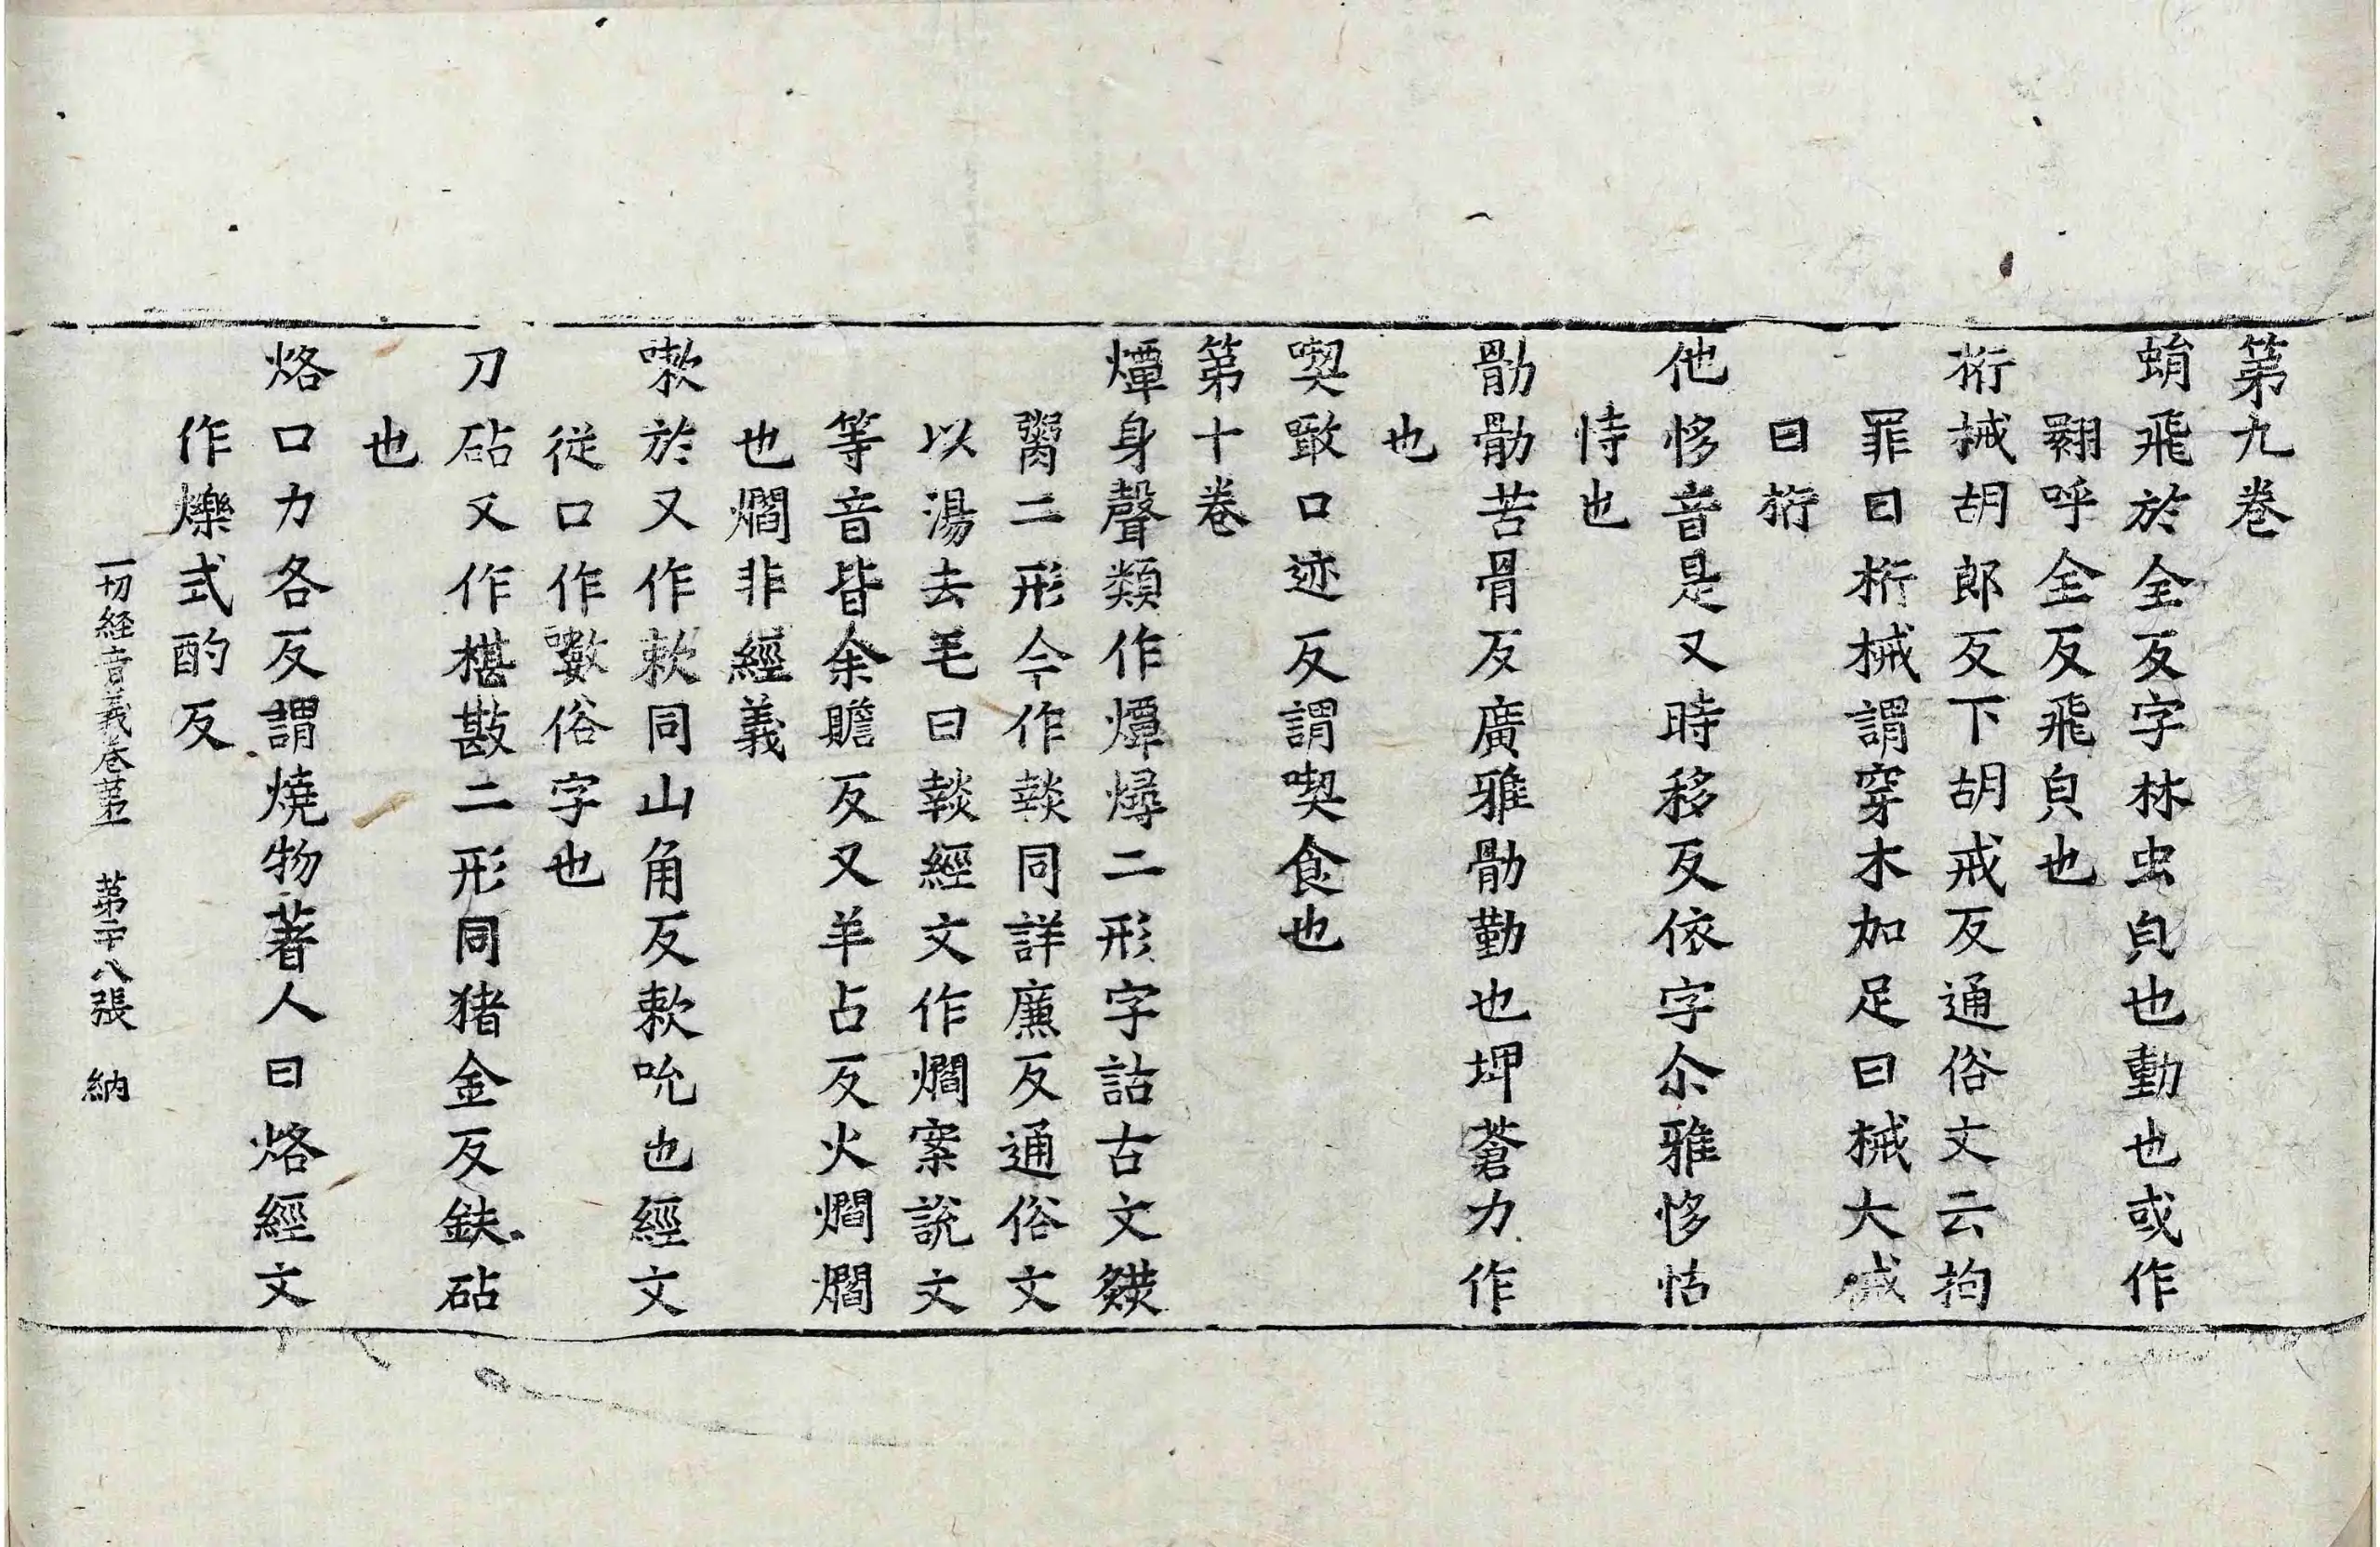 第九卷
蜎飛於全反字林虫皃也動也或作
翾呼全反飛皃也
桁械胡郎反下胡戒反通俗文云拘
罪曰桁械謂穿木加足曰械大械
曰桁
他恀音是又時移反依字尒雅恀怙
恃也
劶劶苦骨反廣雅劶勤也埤蒼力作
也
喫噉口迹反謂喫食也
第十卷
燂身聲類作燂燖二形字詁古文
䰞二形今作㷋同詳廉反通俗文
以湯去毛曰㷋經文作爓案說文
等音皆余贍反又羊占反火爓爓
也爓非經義
嗽於又作欶同山角反欶吮也經文
從口作㘉俗字也
刀砧又作椹㪛二形同猪金反鈇砧
也
烙口力各反謂燒物著人曰烙經文
作爍式酌反
一切経音義卷第一　第二十八張　納